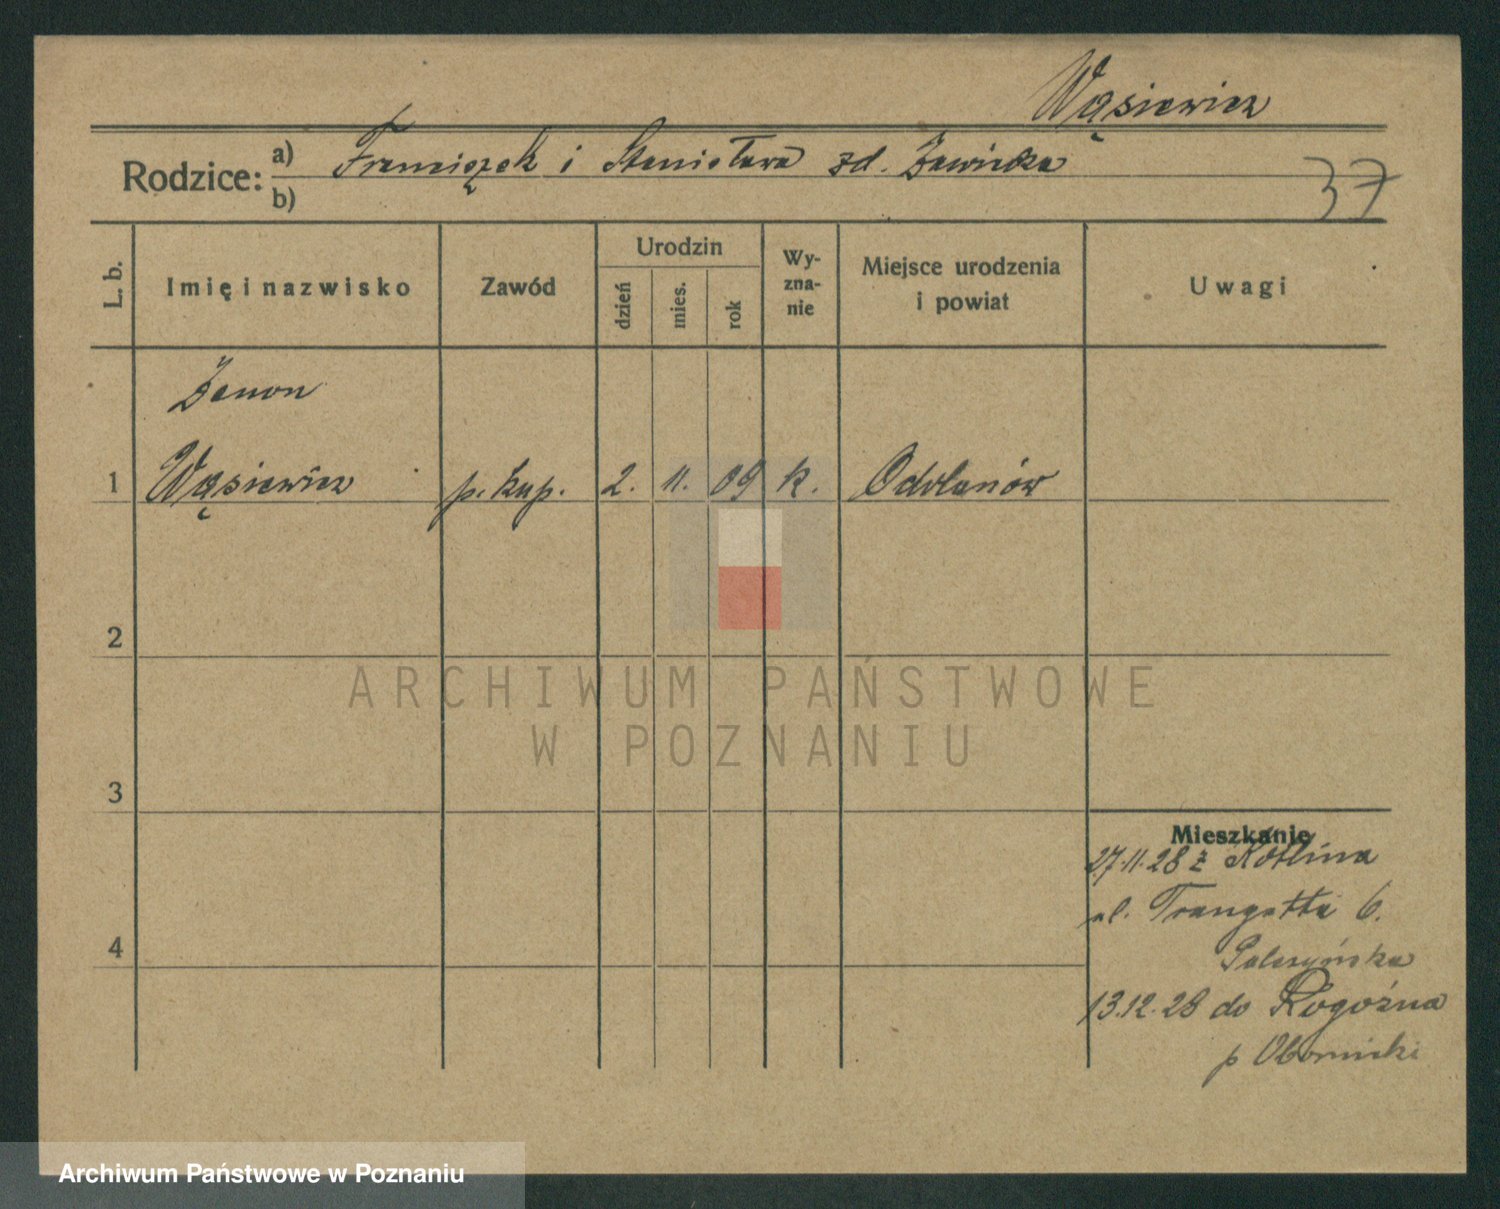 Wąsiewicz
Rodzice: a) Franciszek i Stanisława zd. Zawicka
b)
37
L. b.
Imię i nazwisko
Zawód
Urodzin
dzień
mies.
rok
Wy-
zna-
nie
Miejsce urodzenia
i powiat
Uwagi
Zenon
1 Wąsiewicz p. kup. 2. 11. 09 k. Odolanów
2
ARCHIWUM PAŃSTWOWE
W POZNANIU
3
Mieszkanie
27.11.28 z Kotlina
ul. Traugutta 6.
4
13.12.28 do Rogoźna
p Obornicki
Archiwum Państwowe w Poznaniu